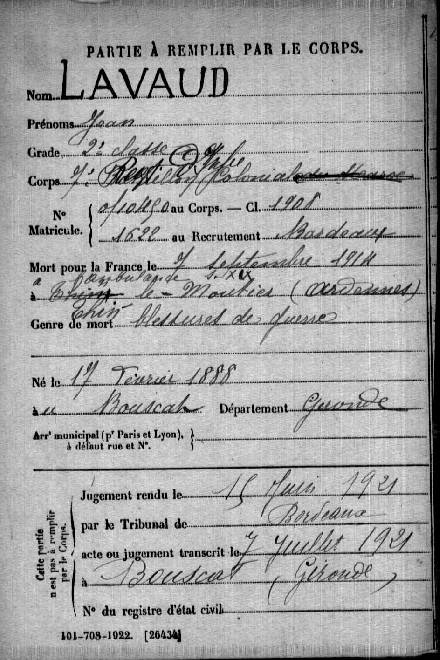 PARTIE À REMPLIR PAR LE CORPS.
Nom LAVAUD
Prénoms Jean
Grade 2e classe
Corps 7e Regt d'Infie Coloniale
Nº Matricule. 01040 au Corps. — Cl. 1908
1622 au Recrutement Bordeaux
Mort pour la France le 7 septembre 1914
à l'ambulance
à Thin le-Moutier (Ardennes)
Thin
Genre de mort blessures de guerre
Né le 17 Février 1888
au Bouscat Département Gironde
Arrt municipal (pr Paris et Lyon),
à défaut rue et Nº.
Cette partie
n'est pas à remplir
par le Corps.
Jugement rendu le 15 Juin 1921
par le Tribunal de Bordeaux
acte ou jugement transcrit le 7 Juillet 1921
à Bouscat (Gironde)
Nº du registre d'état civil
101-708-1922. [26434]